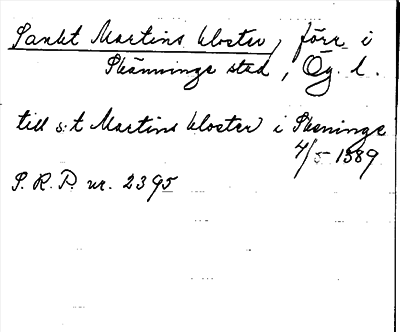 Sankt Martins kloster, förr i
Skänninge stad, Ög. l.
till s:t Martins kloster i Skeninge
4/5 1389
S. R. P. nr. 2395